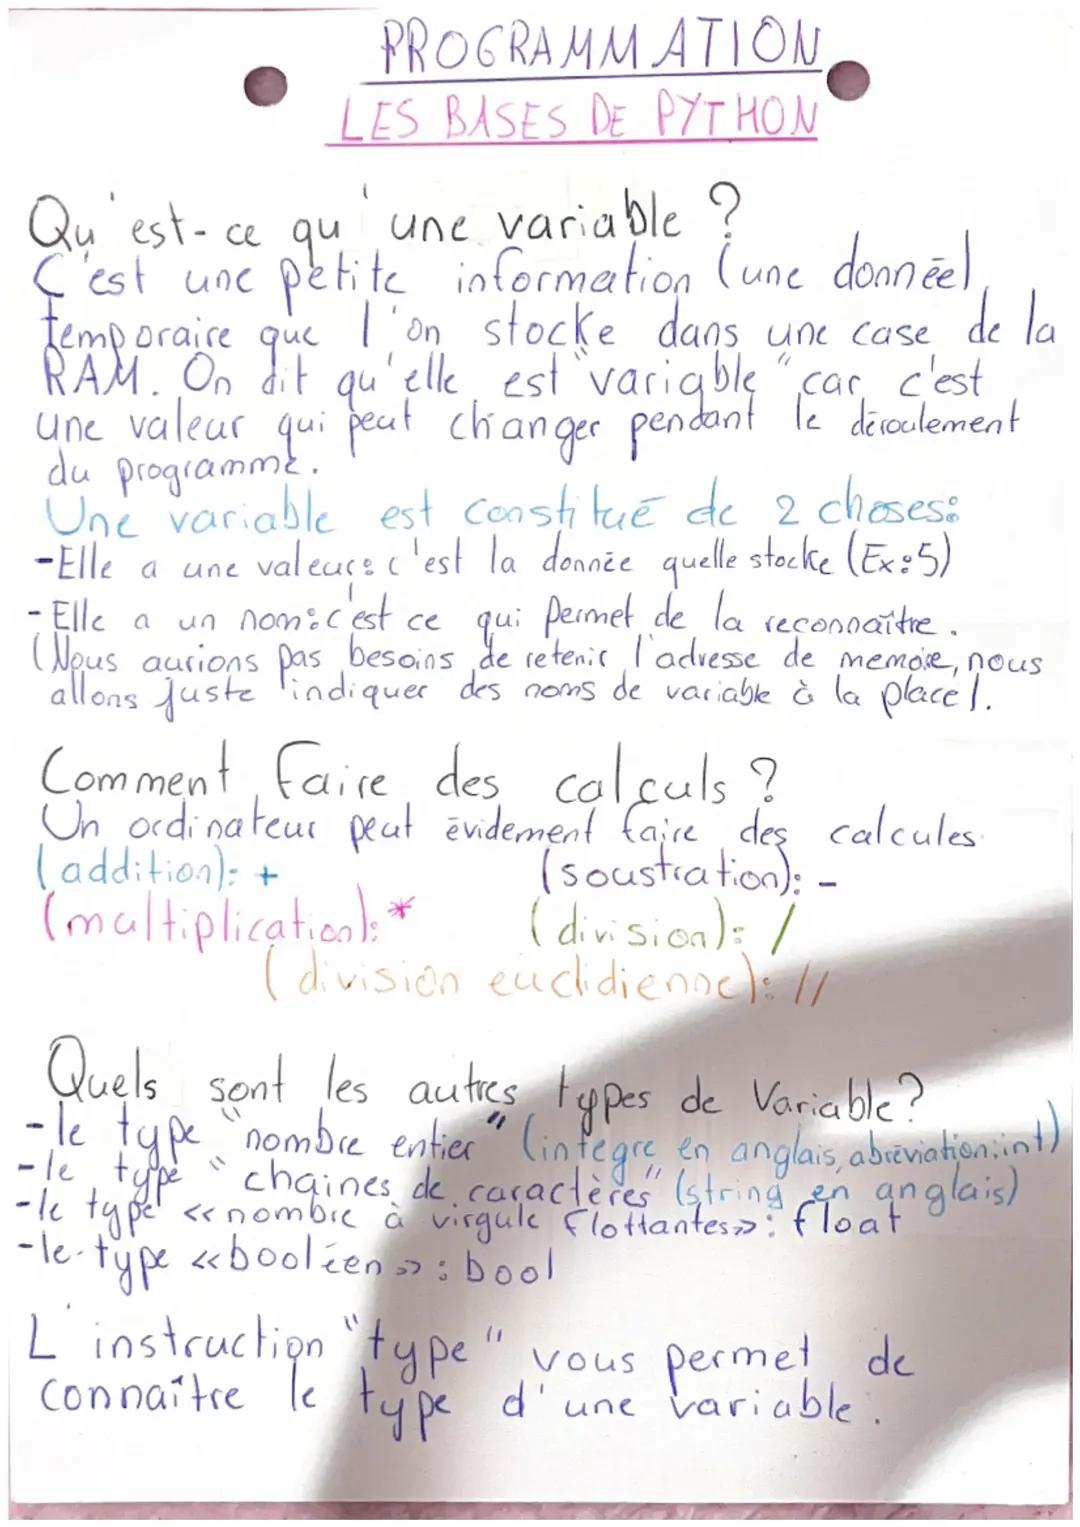 PROGRAMMATION
LES BASES DE PYTHON
Qu'est-ce qu'une variable ?
C'est une petite information (une donnée),
temporaire que l'on stocke dans une case de la
RAM. On dit qu'elle est "variable" car c'est
une valeur qui peut changer pendant le déroulement
du programme.
Une variable est constitué de 2 choses:
-Elle a une valeur: c'est la donnée quelle stocke (Ex:5)
-Elle a un nom:c'est ce qui permet de la reconnaître.
(Nous aurions pas besoins de retenir l'adresse de memoie, nous
allons juste indiquer des noms de variable à la place).
Comment faire des calculs ?
Un ordinateur peut évidement faire des calcules.
(addition): + (soustration): -
(multiplication): * (division): /
(division euclidienne): //
Quels sont les autres types de Variable?
-le type "nombre entier" (integre en anglais, abréviation:int)
-le type "chaines de caractères" (string en anglais)
-le type «nombre à virgule flottantes»: float
-le type «booléen»: bool
L'instruction "type" vous permet de
connaître le type d'une variable.